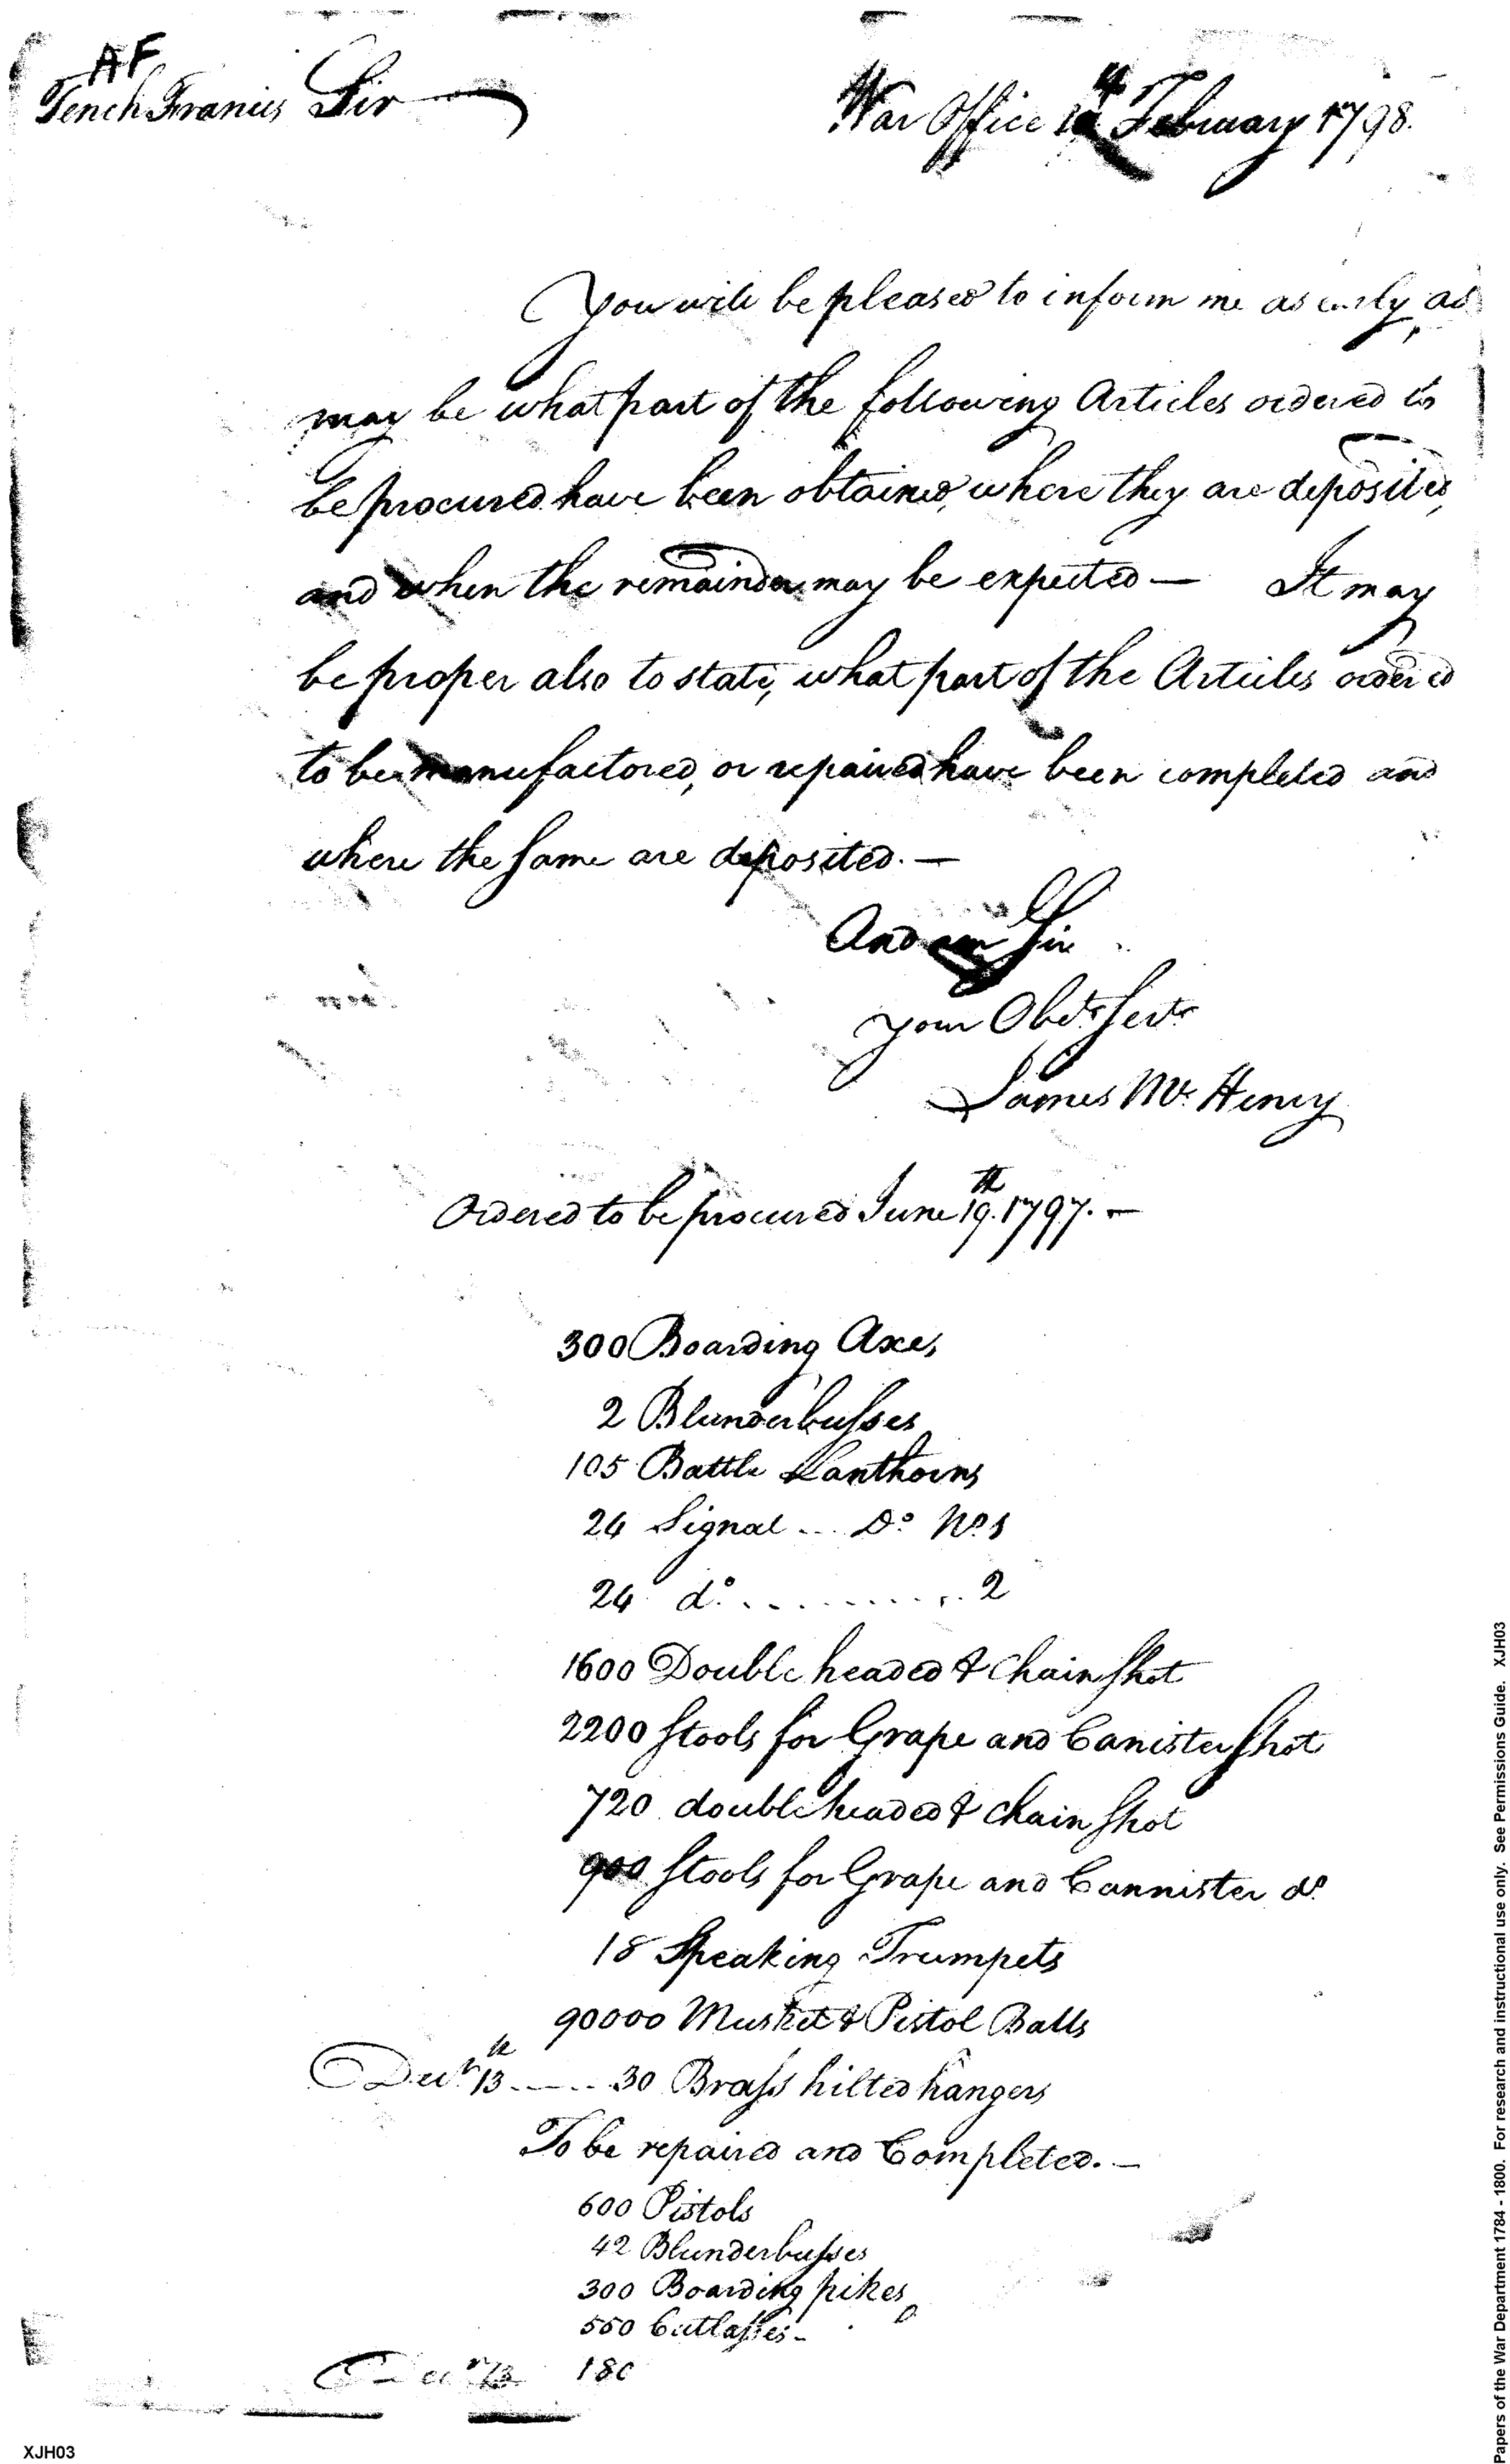 AF
Tench Francis Sir
War Office 1 th February 1798.
You will be pleased to inform me as early as
may be what part of the following Articles ordered to
be procured have been obtained, where they are deposited,
and when the remainder may be expected — It may
be proper also to state, what part of the Articles ordered
to be manufactored, or repaired have been completed and
where the same are deposited. —
And am Sir
your Obdt. Servt.
James Mc. Henry
Ordered to be procured June 19th. 1797. —
300 Boarding Axes
2 Blunderbusses
105 Battle Lanthorns
24 Signal ... Do. No. 1
24 do. .......... 2
1600 Double headed & chain shot
2200 Stools for Grape and Canister shot
720 double headed & chain shot
900 Stools for Grape and Cannister do.
18 Speaking Trumpets
90000 Musket & Pistol Balls
Decr. 13th ..... 30 Brass hilted hangers
To be repaired and Completed. —
600 Pistols
42 Blunderbusses
300 Boarding pikes
550 Cutlasses -
Decr. 13 180
XJH03
Papers of the War Department 1784 - 1800. For research and instructional use only. See Permissions Guide. XJH03